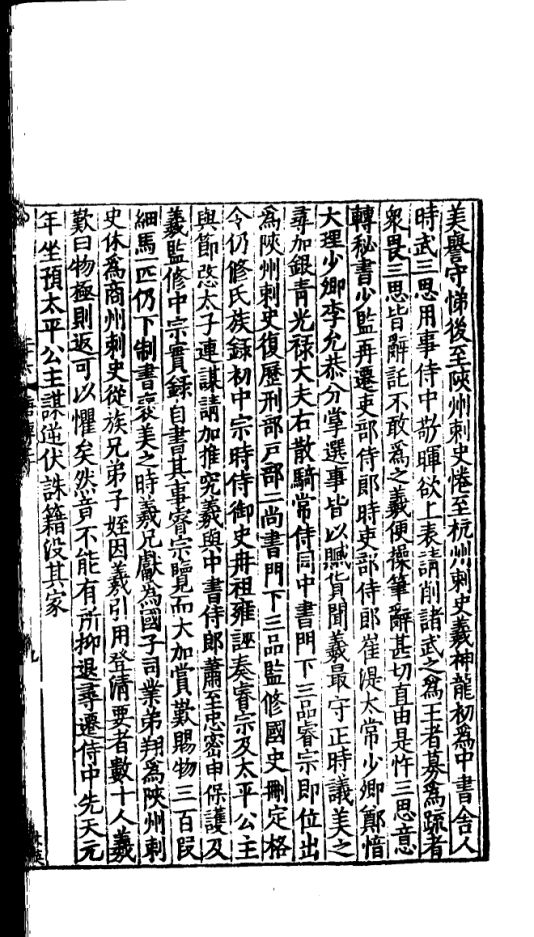 美譽守悌後至陝州刺史惓至杭州刺史羲神龍初爲中書舍人
時武三思用事侍中敬暉欲上表請削諸武之爲王者募爲疏者
衆畏三思皆辭託不敢爲之羲便操筆辭甚切直由是忤三思意
轉秘書少監再遷吏部侍郎時吏部侍郎崔湜太常少卿鄭愔
大理少卿李允恭分掌選事皆以贓貨聞羲最守正時議美之
尋加銀青光禄大夫右散騎常侍同中書門下三品睿宗即位出
爲陝州刺史復歷刑部戸部二尚書門下三品監修國史刪定格
令仍修氏族録初中宗時侍御史冉祖雍誣奏睿宗及太平公主
與節愍太子連謀請加推究羲與中書侍郎蕭至忠密申保護及
羲監修中宗實録自書其事睿宗覽而大加賞歎賜物三百段
細馬一匹仍下制書褒美之時羲兄獻為國子司業弟翔爲陝州刺
史休爲商州刺史從族兄弟子姪因羲引用登清要者數十人羲
歎曰物極則返可以懼矣然竟不能有所抑退尋遷侍中先天元
年坐預太平公主謀逆伏誅籍没其家